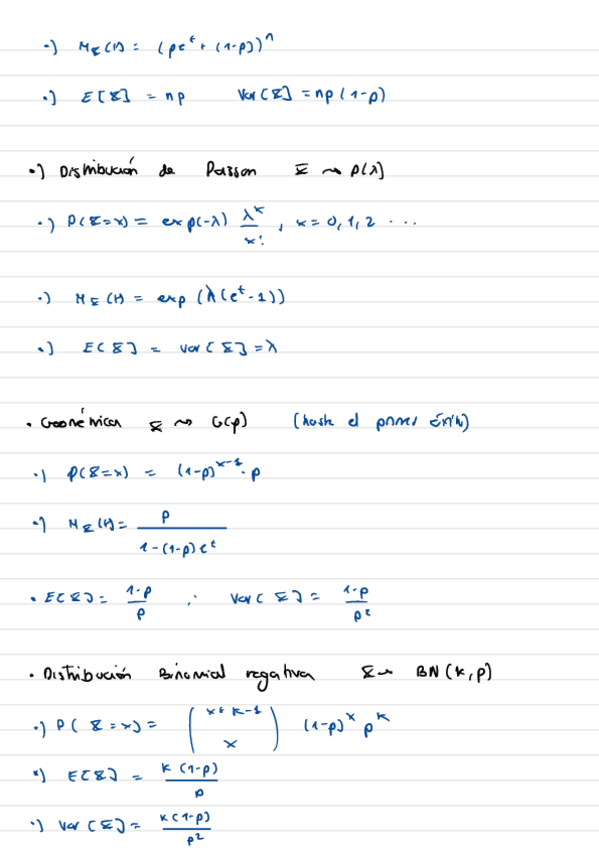 ·) M_X(t) = (pe^t + (1-p))^n
·) E[X] = np Var[X] = np(1-p)
·) Distribución de Poisson X ~> P(λ)
·) P(X=x) = exp(-λ) λ^x/x! , x = 0, 1, 2 ...
·) M_X(t) = exp(λ(e^t-1))
·) E[X] = Var[X] = λ
· Geométrica X ~> G(p) (hasta el primer éxito)
·) P(X=x) = (1-p)^{x-1} · p
·) M_X(t) = p/(1-(1-p)e^t)
· E[X] = (1-p)/p ∴ Var[X] = (1-p)/p²
· Distribución Binomial negativa X ~ BN(k,p)
·) P(X=x) = (x+k-1 x) (1-p)^x p^k
·) E[X] = k(1-p)/p
·) Var[X] = k(1-p)/p²